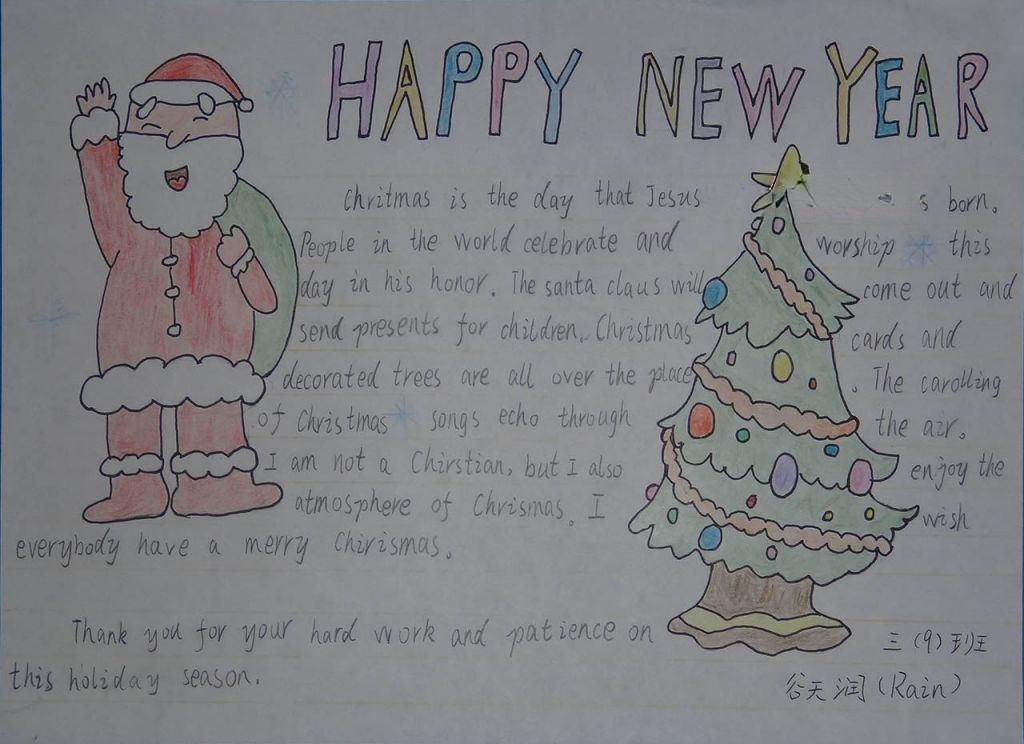 HAPPY NEW YEAR
Chritmas is the day that Jesus s born.
People in the world celebrate and worship this
day in his honor. The santa claus will come out and
send presents for children. Christmas cards and
decorated trees are all over the place. The carolling
of Christmas songs echo through the air.
I am not a Chirstian, but I also enjoy the
atmosphere of Chrismas. I wish
everybody have a merry Chirismas.
Thank you for your hard work and patience on
this holiday season.
三(9)班
谷天润(Rain)